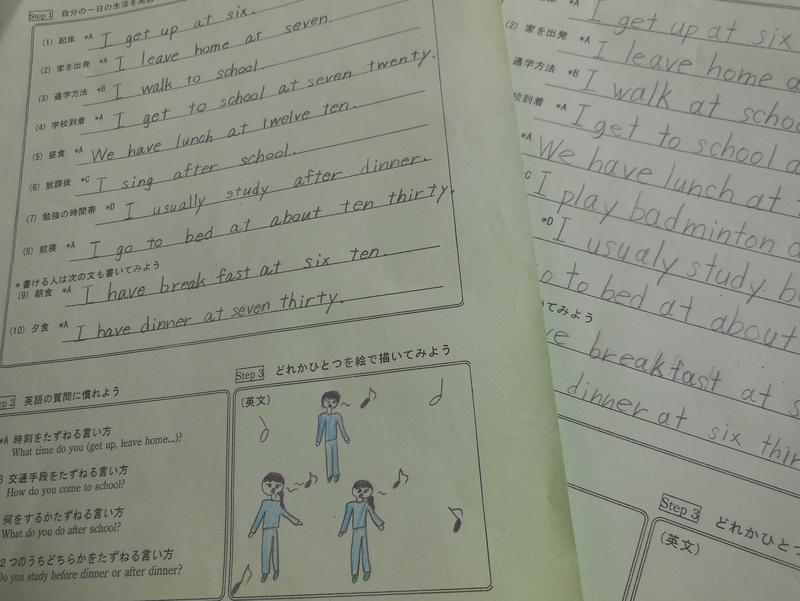 Step 1 自分の一日の生活を
(1) 起床 *A I get up at six.
(2) 家を出発 *A I leave home at seven.
(3) 通学方法 *B I walk to school.
(4) 学校到着 *A I get to school at seven twenty.
(5) 昼食 *A We have lunch at twelve ten.
(6) 放課後 *C I sing after school.
(7) 勉強の時間帯 *D I usually study after dinner.
(8) 就寝 *A I go to bed at about ten thirty.
*書ける人は次の文も書いてみよう
(9) 朝食 *A I have break fast at six ten.
(10) 夕食 *A I have dinner at seven thirty.
ep 2 英語の質問に慣れよう
*A 時刻をたずねる言い方
What time do you (get up, leave home...)?
B 交通手段をたずねる言い方
How do you come to school?
何をするかたずねる言い方
What do you do after school?
2つのうちどちらかをたずねる言い方
Do you study before dinner or after dinner?
Step 3 どれかひとつを絵で描いてみよう
(英文)
*A I get up at six
(2) 家を出発 *A I leave home a
通学方法 *B I walk at schoo
校到着 *A I get to school a
*A We have lunch at
C I play badminton a
*D I usualy study b
o to bed at about
いてみよう
ve breakfast at s
dinner at six thir
Step 3 どれかひと
(英文)